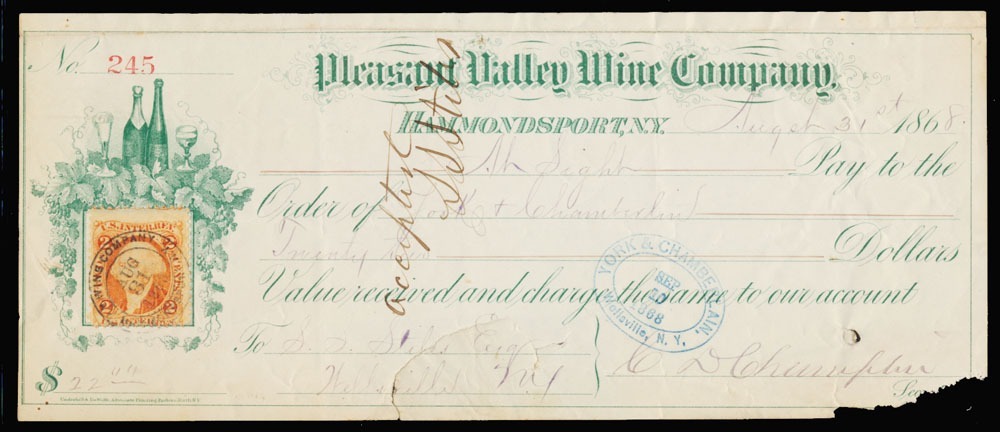 No. 245
Pleasant Valley Wine Company,
HAMMONDSPORT, N.Y. August 31st 1868.
At Sight Pay to the
Order of York & Chamberlin
Twenty two Dollars
Value received and charge the same to our account
To Esqr
Wellsville NY
C D Champlin
Sec
$ 22 00
accepted
U.S. INTER. REV.
2 2
WINE COMPANY
AUG 31
YORK & CHAMBERLAIN,
SEP
10
1868
Wellsville, N. Y.